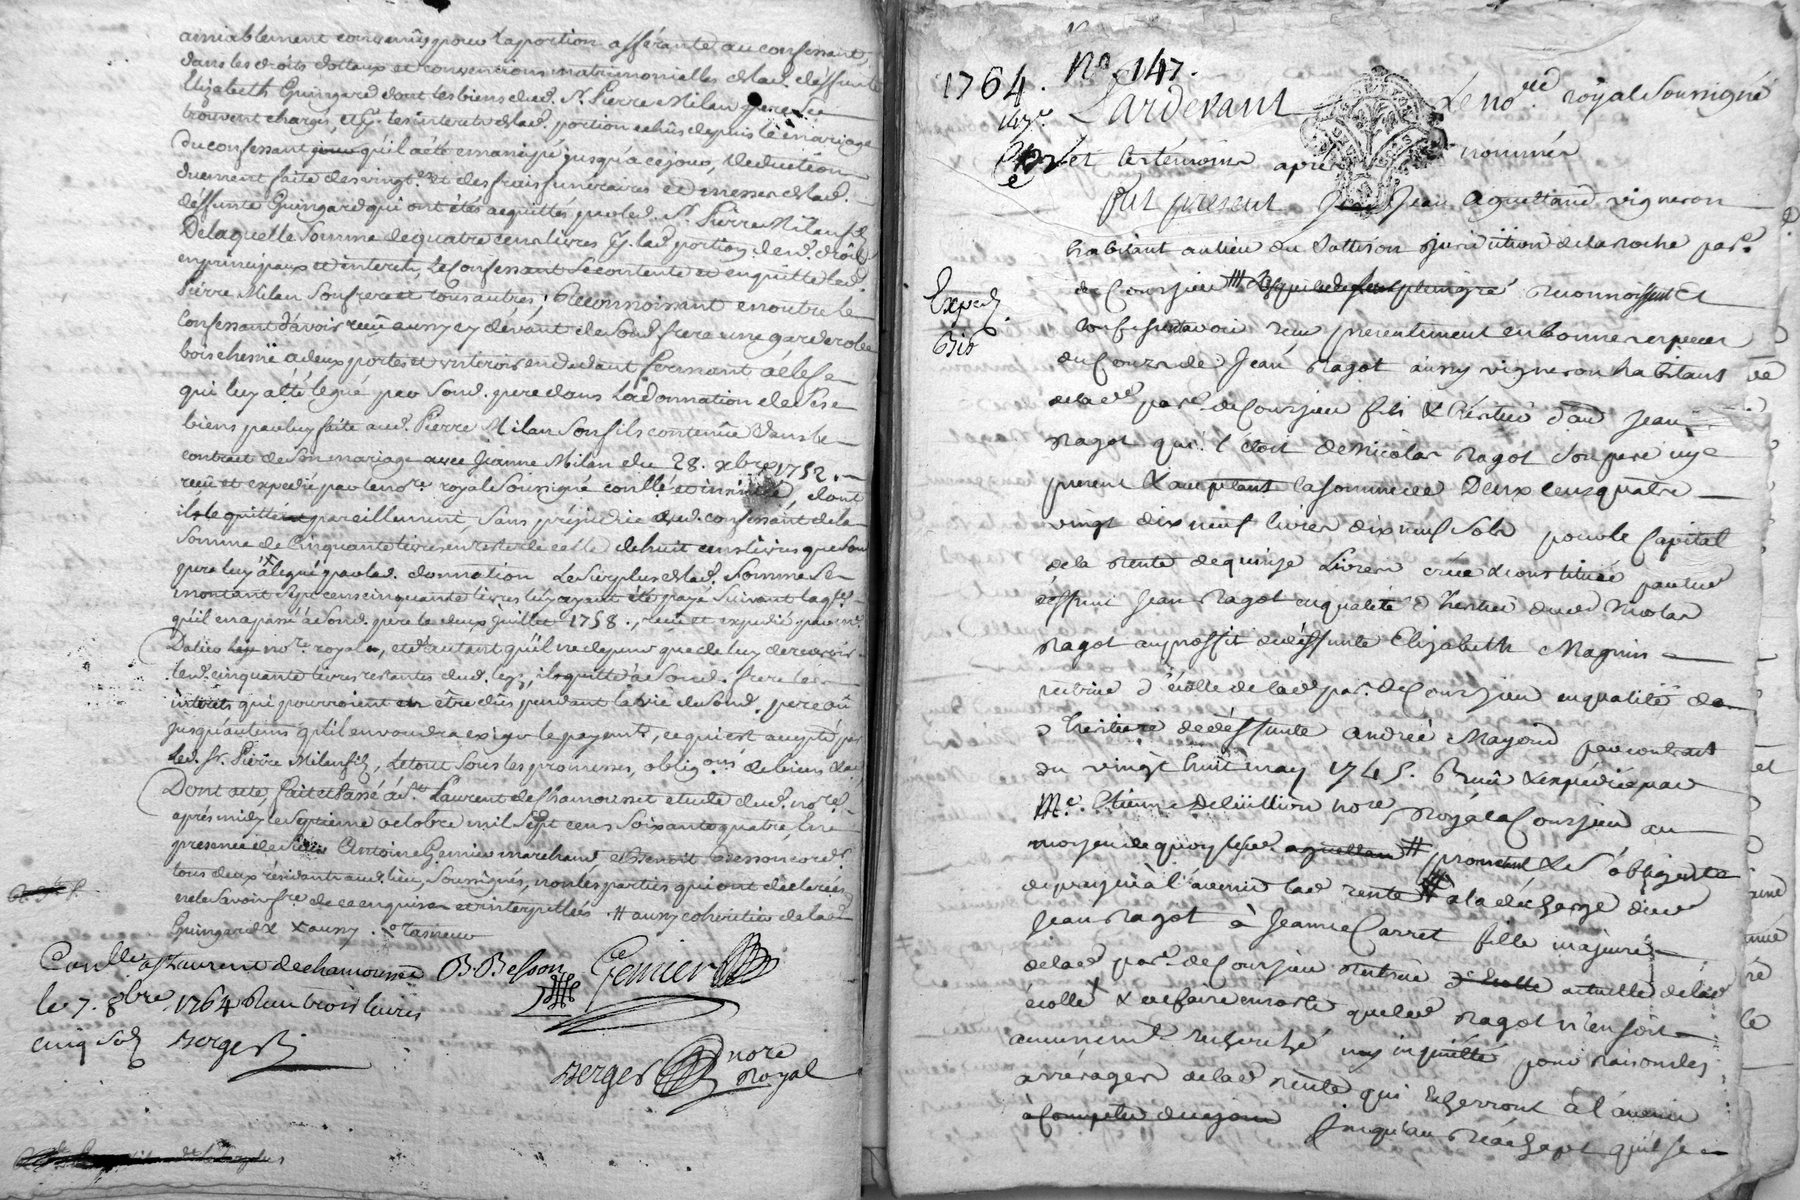 amiablement convenu pour la portion afférante au confessant,
dans les droits dottaux et conventions matrimonielles de lad. deffunte
Elizabeth Guingard dont les biens dud. Sr. Pierre Milan pere se
trouvent chargés, et les interets de lad. portion echûs depuis le mariage
du confessant qu'il a été emancipé jusqu'à ce jour, deduction
duement faite des vingt. et des frais funeraires et messes de lad.
deffunte Guingard qui ont étés acquittés par led. Sr. Pierre Milan fils
De laquelle somme de quatre cens livres pr. lad. portion de nd. droits
en principaux et interets, le confessant se contente et en quitte led.
Pierre Milan son frere et tous autres; Reconnoissant en outre le
confessant d'avoir reçu aussy cy devant de sond. frere une garderobe
bois chesne a deux portes et un tiroir en dedant fermant a clef
qui luy a été legué par sond. pere dans la donnation de ses
biens par luy faite aud. Pierre Milan son fils contenue dans le
contract de son mariage avec Jeanne Milan du 28. xbre 1752.
reçu et expedié par le nore. royal soussigné conllé et insinué, dont
il le quitte pareillement, sans préjudice aud. confessant de la
somme de cinquante livres en reste de celle de huit cens livres que son
pere luy a legué par lad. donnation le surplus de lad. somme se
montant sept cens cinquante livres luy ayant été payé suivant la
qu'il en a passé à sond. pere le deux juillet 1758., reçu et expedié par me.
Dalieu nore. royal, et d'autant qu'il ne dépend que de luy de recevoir
led. cinquante livres restantes dud. legs, il quitte à sond. frere les
interêts qui pourroient en être dûs pendant la vie de sond. pere où
jusqu'au tems qu'il en voudra exiger le payemt., ce qui est accepté par
led. Sr. Pierre Milan fils, le tout sous les promesses, obligons. de biens &a
Dont acte, fait et passé à St. Laurent de Chamousset etude dud. nore.
après midy le septieme octobre mil sept cens soixante quatre, en
presence de Antoine Gemier marchand et Benoit Besson cord.
tous deux résidants aud. lieu, soussignés, non les parties qui ont declarées
ne le savoir fre. de ce enquises et interpellés. # aussy coheritier de lad.
Guingard X X aussy.
Conllé a St Laurent de chamousset B. Besson Gemier
le 7. 8bre 1764 Reçu trois livres
cinq sols Berger
Berger nore
Royal
1764. No. 147.
Pardevant Le nore. royal soussigné
et les témoins après nommés
fut present Jean Aguettand vigneron
habitant au lieu du juridiction de la roche pare.
de Coursieu # reconnoissent et
confesse avoir reçu presentement en bonnes especes
du cours de Jean Ragot aussy vigneron habitant
de lad. pare. de Coursieu fils & héritier d'aud Jean
Ragot qui l'etoit de Nicolas Ragot son pere icy
present & acceptant la somme de Deux cens quatre
vingt dix neuf livres dix neuf sols pour le capital
de la rente de quinze livres créée & constituée par led
deffunt Jean Ragot en qualité d'héritier dud Nicolas
Ragot au proffit de déffunte Elizabeth Magnin
rectrice d'école de lad. par. de Coursieu en qualité de
d'héritiere de deffunte andrée Mayoud par contrat
du vingt huit may 1745. Reçû & expedié par
Me. Etienne nore Royal à Coursieu au
moyen de quoy # promet & s'oblige
de payer à l'avenir lad rente # a la décharge dud
Jean Ragot à Jeanne Carret fille majeure
de lad par. de Coursieu rectrice d'école actuelle de lad
école & de faire en sorte que led Ragot n'en soit
aucunemt. recherché ny inquiété pour raison des
arrérages de lad rente qui écherront à l'avenir
à compter de ce jour jusqu'au réachept qu'il se
Exped.